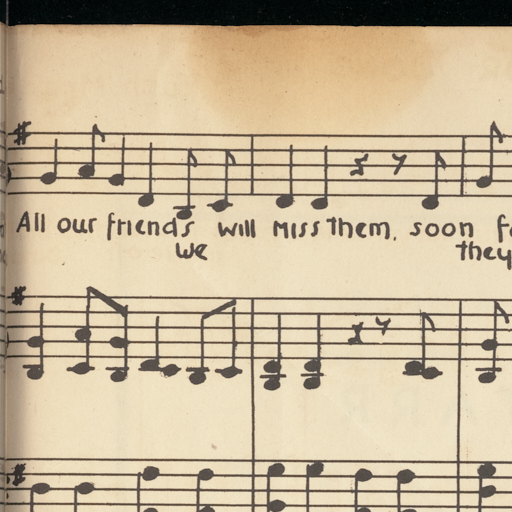 All our friends will Miss them, soon
we they